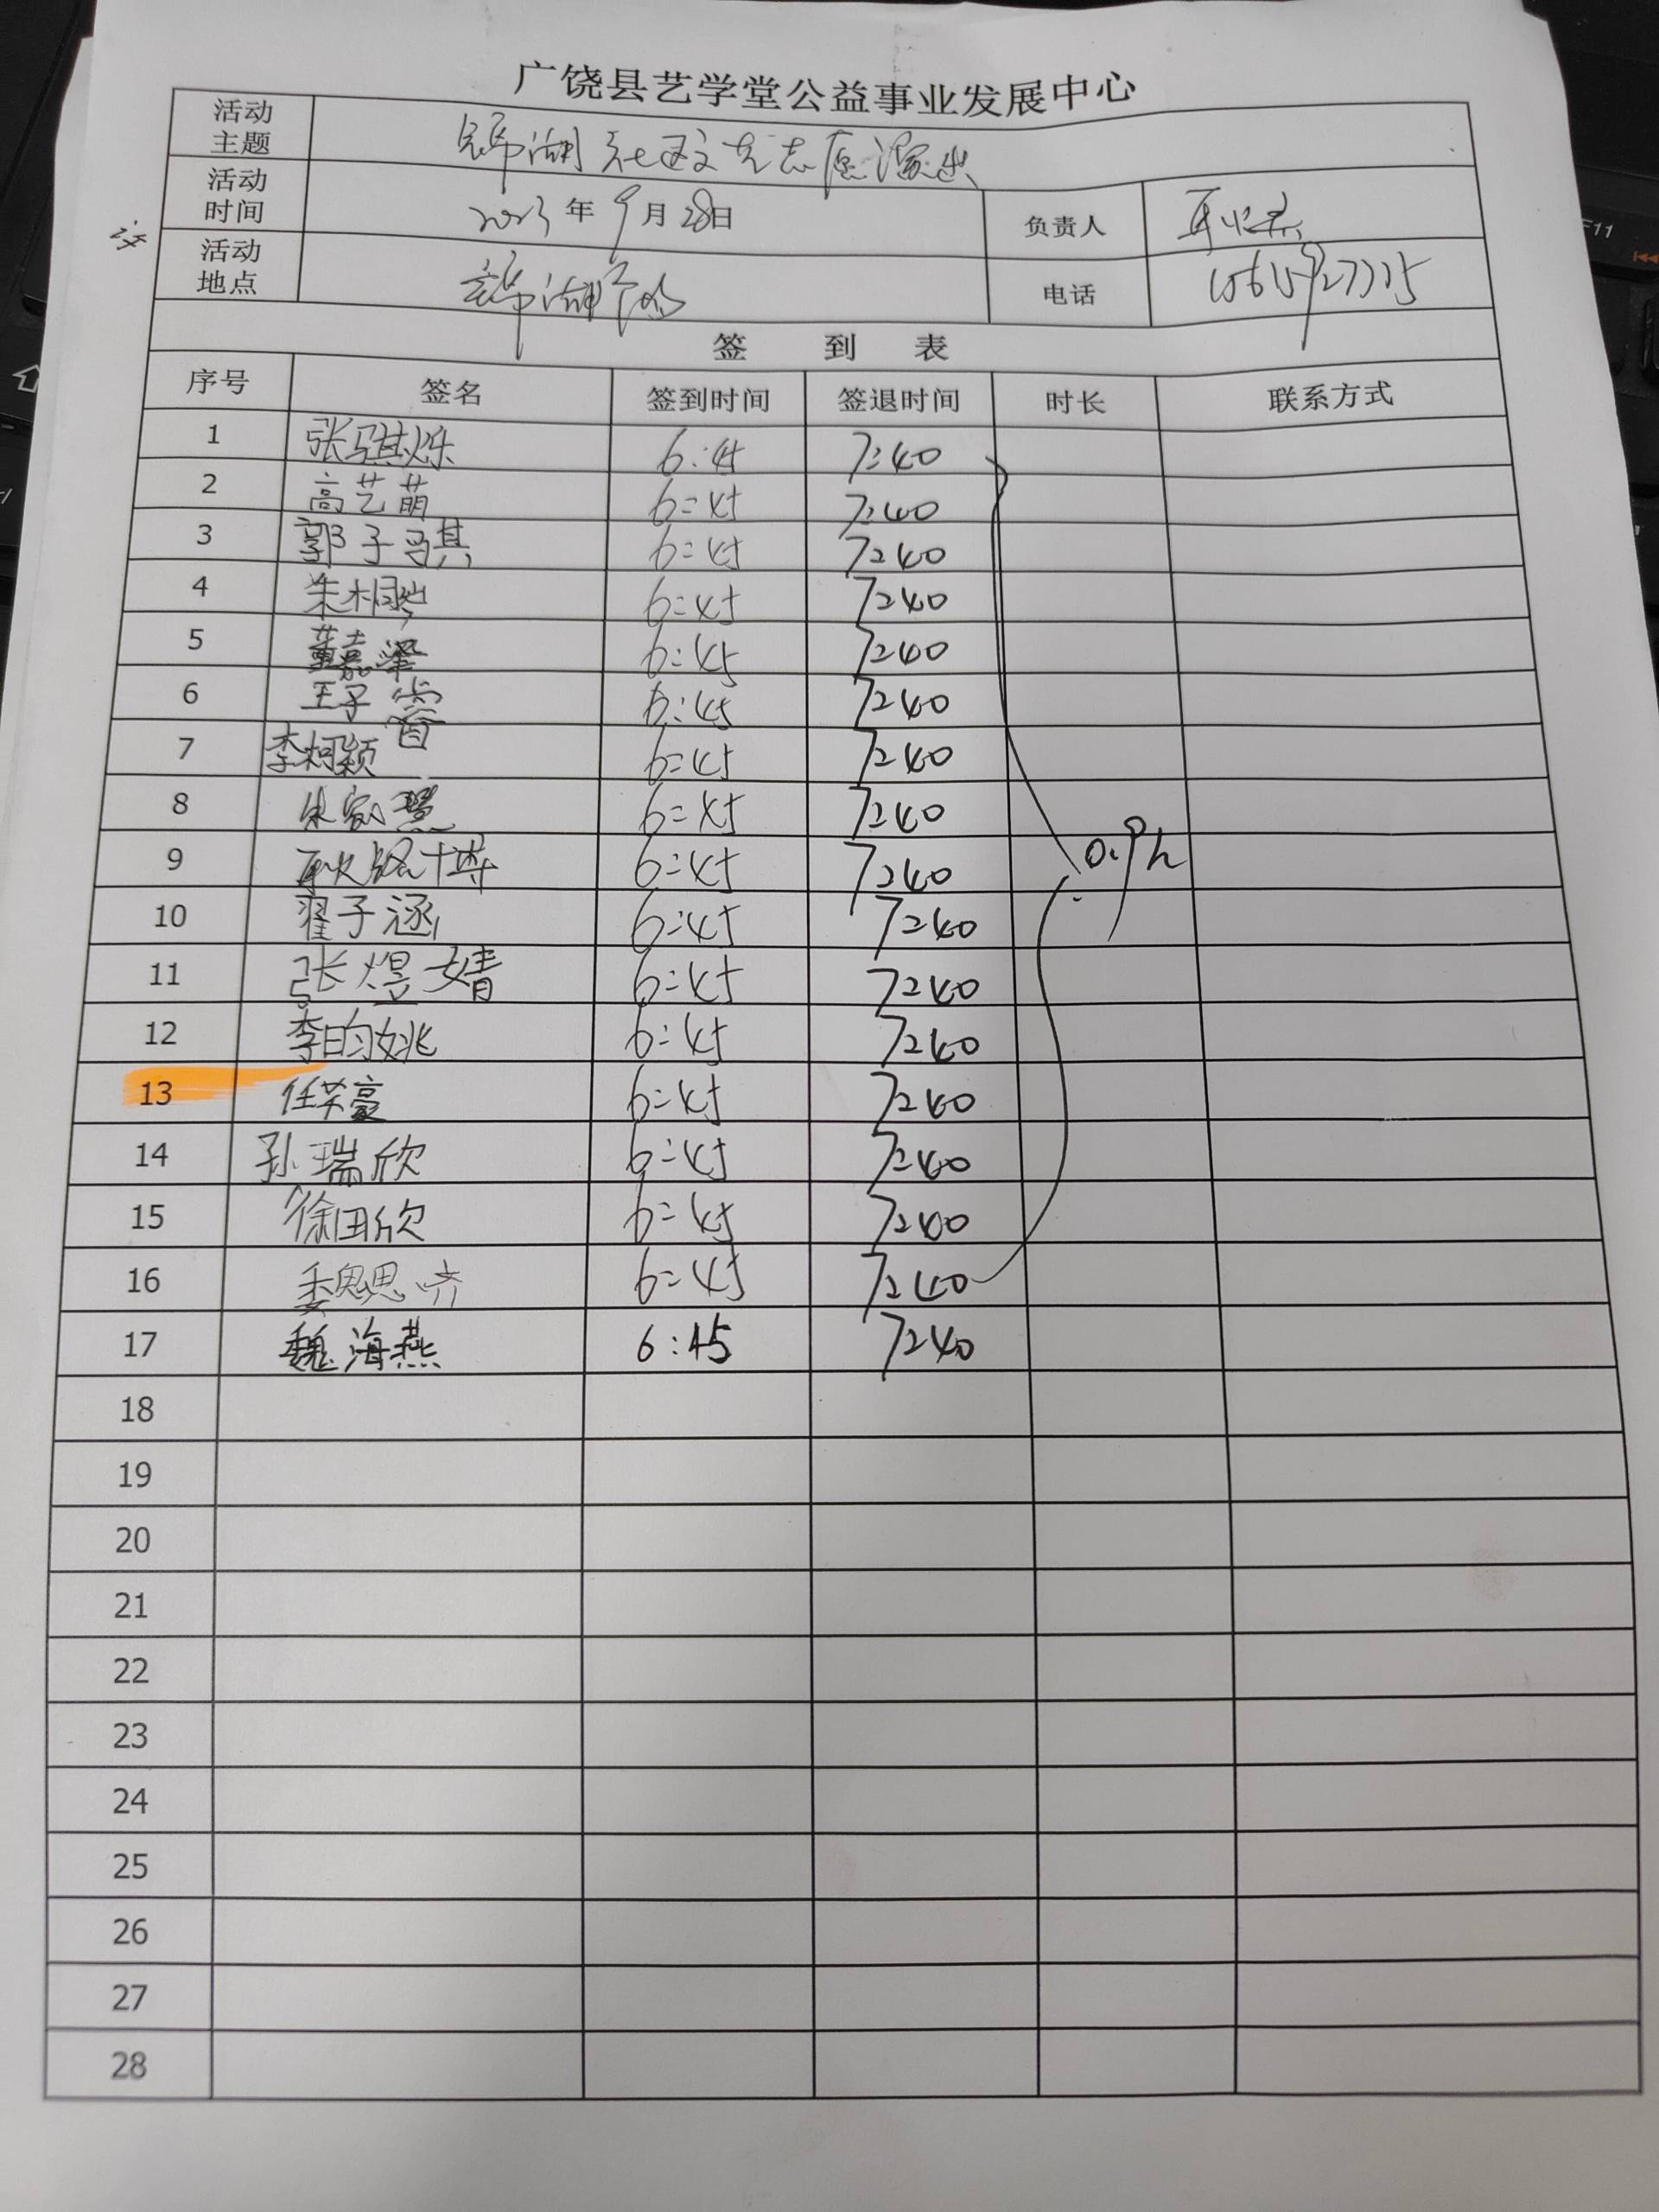 广饶县艺学堂公益事业发展中心
活动主题 锦湖社区文艺志愿演出
活动时间 2023年9月28日 负责人
活动地点 锦湖 电话
签到表
序号 签名 签到时间 签退时间 时长 联系方式
1 张骐烁 6:45 7:40
2 高艺萌 6:45 7:40
3 郭子骐 6:45 7:40
4 朱桐 6:45 7:40
5 董嘉 6:45 7:40
6 王子睿 6:45 7:40
7 李柯颖 6:45 7:40
8 朱家慧 6:45 7:40
9 耿铭博 6:45 7:40 0.9h
10 翟子涵 6:45 7:40
11 张煜婧 6:45 7:40
12 李昀姚 6:45 7:40
13 任荣豪 6:45 7:40
14 孙瑞欣 6:45 7:40
15 徐田欣 6:45 7:40
16 魏思齐 6:45 7:40
17 魏海燕 6:45 7:40
18
19
20
21
22
23
24
25
26
27
28
F11